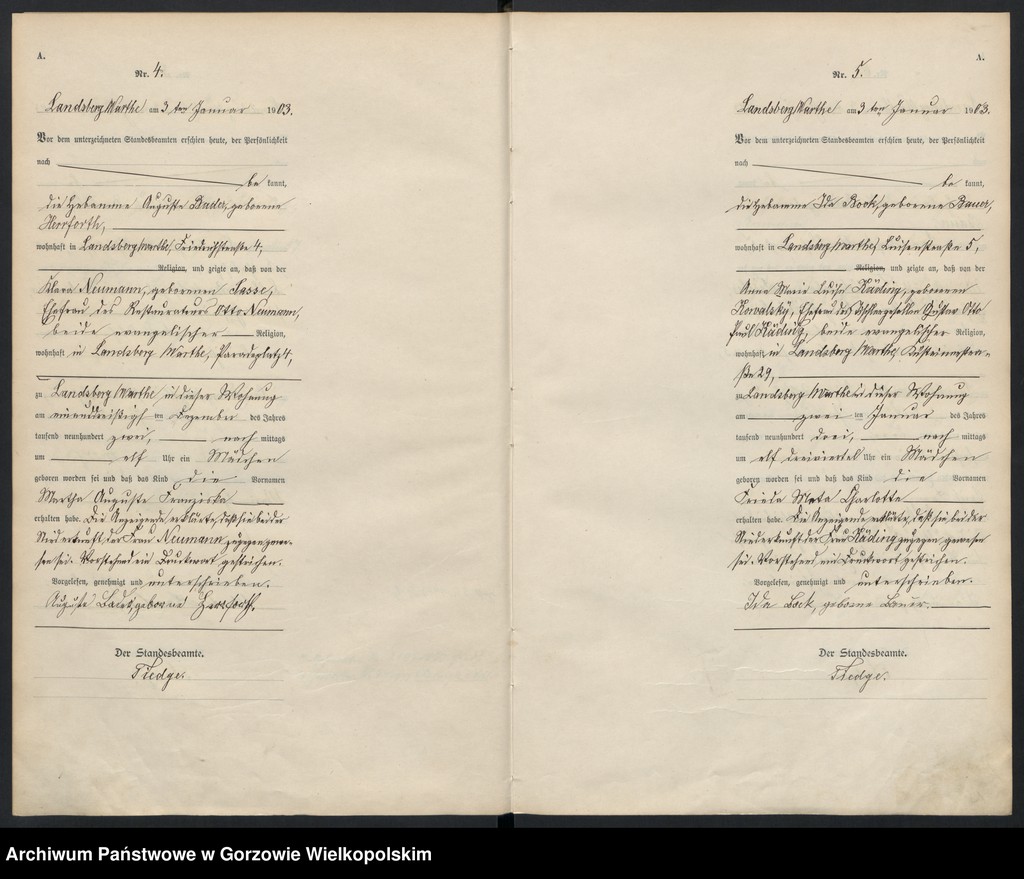 A.
Nr. 4.
Landsberg Warthe am 3 ten Januar 1903.
Vor dem unterzeichneten Standesbeamten erschien heute, der Persönlichkeit
nach
be kannt,
die Hebamme Auguste Bade, geborene
Herrforth,
wohnhaft in Landsberg Warthe, Friedrichstraße 4,
Religion, und zeigte an, daß von der
Klara Neumann, geborenen Sasse,
Ehefrau des Restaurateurs Otto Neumann,
beide evangelischer Religion,
wohnhaft in Landsberg Warthe, Paradeplatz 4,
zu Landsberg Warthe in dieser Wohnung
am einunddreißigsten ten Dezember des Jahres
tausend neunhundert zwei, nach mittags
um elf Uhr ein Mädchen
geboren worden sei und daß das Kind die Vornamen
Martha Auguste Franziska
erhalten habe. Die Anzeigende erklärte, daß sie bei der
Niederkunft der Frau Neumann zugegen gewe-
sen sei. Vorstehend ein Druckwort gestrichen.
Vorgelesen, genehmigt und unterschrieben.
Auguste Bade, geborene Herrforth.
Der Standesbeamte.
Tiedge.
A.
Nr. 5.
Landsberg Warthe am 3 ten Januar 1903.
Vor dem unterzeichneten Standesbeamten erschien heute, der Persönlichkeit
nach
be kannt,
die Hebamme Ida Bock, geborene Bauer,
wohnhaft in Landsberg Warthe, Luisenstraße 5,
Religion, und zeigte an, daß von der
Anna Marie Luise Käding, geborenen
Kowalsky, Ehefrau des Tischlergesellen Gustav Otto
Paul Käding, beide evangelischer Religion,
wohnhaft in Landsberg Warthe, Küstrinerstra-
ße 29,
zu Landsberg Warthe in dieser Wohnung
am zwei ten Januar des Jahres
tausend neunhundert drei, nach mittags
um elf dreiviertel Uhr ein Mädchen
geboren worden sei und daß das Kind die Vornamen
Frieda Meta Charlotte
erhalten habe. Die Anzeigende erklärte, daß sie bei der
Niederkunft der Frau Käding zugegen gewesen
sei. Vorstehend ein Druckwort gestrichen.
Vorgelesen, genehmigt und unterschrieben.
Ida Bock, geborne Bauer.
Der Standesbeamte.
Tiedge.
Archiwum Państwowe w Gorzowie Wielkopolskim